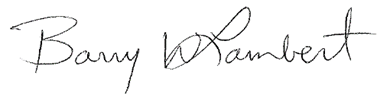 Barry D Lambert